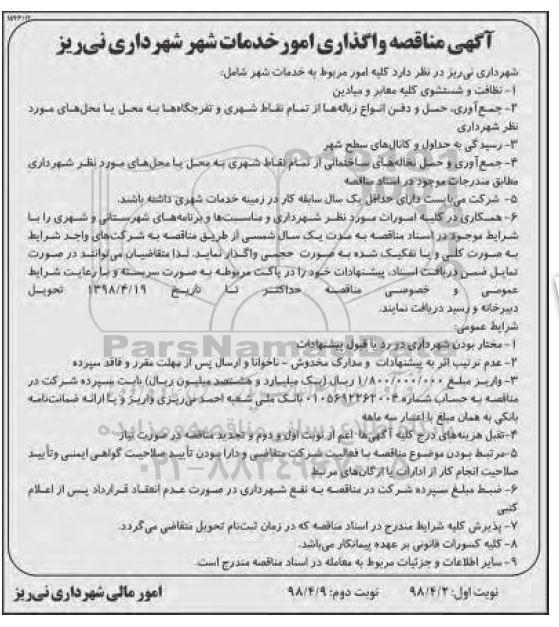 آگهی مناقصه واگذاری امور خدمات شهر شهرداری نی‌ریز
شهرداری نی‌ریز در نظر دارد کلیه امور مربوط به خدمات شهر شامل:
۱- نظافت و شستشوی کلیه معابر و میادین
۲- جمع‌آوری، حمل و دفن انواع زباله‌ها از تمام نقاط شهری و تفرجگاه‌ها به محل یا محل‌های مورد
نظر شهرداری
۳- رسیدگی به جداول و کانال‌های سطح شهر
۴- جمع‌آوری و حمل نخاله‌های ساختمانی از تمام نقاط شهری به محل یا محل‌های مورد نظر شهرداری
مطابق مندرجات موجود در اسناد مناقصه
۵- شرکت می‌بایست دارای حداقل یک سال سابقه کار در زمینه خدمات شهری داشته باشند.
۶- همکاری در کلیه امورات مورد نظر شهرداری و مناسبت‌ها و برنامه‌های شهرستانی و شهری را با
شرایط موجود در اسناد مناقصه به مدت یک سال شمسی از طریق مناقصه به شرکت‌های واجد شرایط
به صورت کلی و یا تفکیک شده به صورت حجمی واگذار نماید. لذا متقاضیان می‌توانند در صورت
تمایل ضمن دریافت اسناد، پیشنهادات خود را در پاکت مربوطه به صورت سربسته و با رعایت شرایط
عمومی و خصوصی مناقصه حداکثر تا تاریخ ۱۳۹۸/۴/۱۹ تحویل
دبیرخانه و رسید دریافت نمایند.
شرایط عمومی:
۱- مختار بودن شهرداری در رد یا قبول پیشنهادات
۲- عدم ترتیب اثر به پیشنهادات و مدارک مخدوش - ناخوانا و ارسال پس از مهلت مقرر و فاقد سپرده
۳- واریز مبلغ ۱/۸۰۰/۰۰۰/۰۰۰ ریال (یک میلیارد و هشتصد میلیون ریال) بابت سپرده شرکت در
مناقصه به حساب شماره ۰۱۰۵۶۹۲۲۶۲۰۰۴ بانک ملی شعبه احمد نی‌ریزی واریز و یا ارائه ضمانت‌نامه
بانکی به همان مبلغ با اعتبار سه ماهه
۴- تقبل هزینه‌های درج کلیه آگهی‌ها اعم از نوبت اول و دوم و تجدید مناقصه در صورت نیاز
۵- مرتبط بودن موضوع مناقصه با فعالیت شرکت متقاضی و دارا بودن تأیید صلاحیت گواهی ایمنی و تأیید
صلاحیت انجام کار از ادارات یا ارگان‌های مرتبط
۶- ضبط مبلغ سپرده شرکت در مناقصه به نفع شهرداری در صورت عدم انعقاد قرارداد پس از اعلام
کتبی
۷- پذیرش کلیه شرایط مندرج در اسناد مناقصه که در زمان ثبت‌نام تحویل متقاضی می‌گردد.
۸- کلیه کسورات قانونی بر عهده پیمانکار می‌باشد.
۹- سایر اطلاعات و جزئیات مربوط به معامله در اسناد مناقصه مندرج است.
نوبت اول: ۹۸/۴/۲ نوبت دوم: ۹۸/۴/۹
امور مالی شهرداری نی‌ریز
ParsNamadData